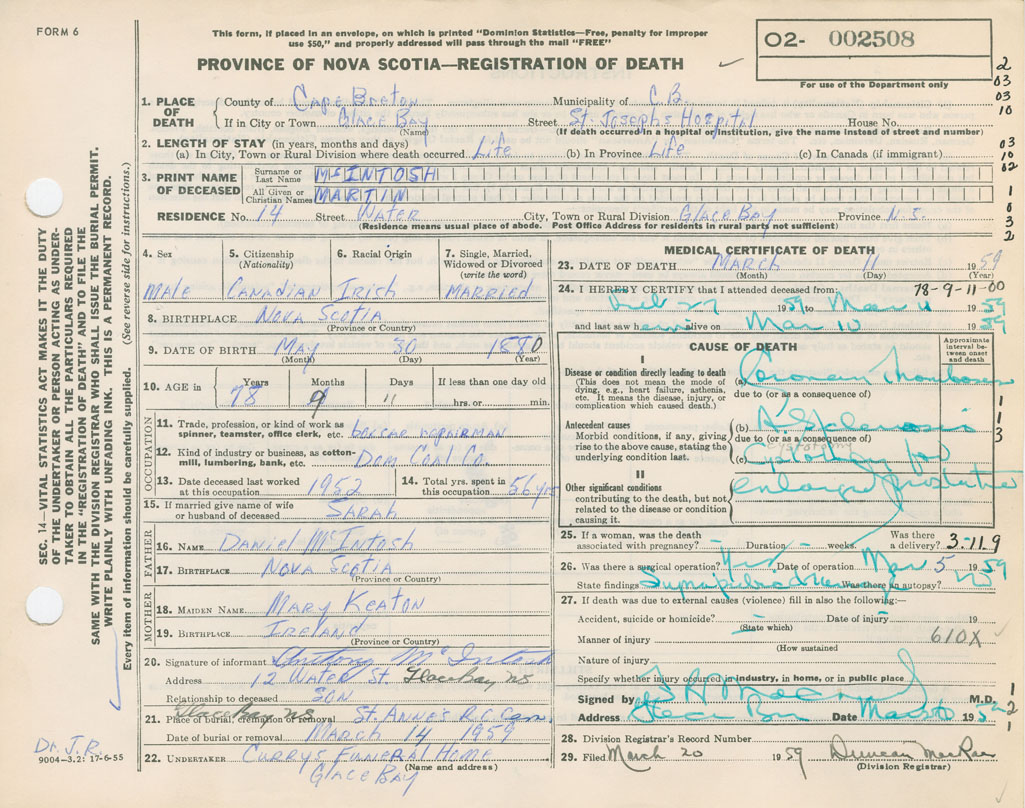 FORM 6
This form, if placed in an envelope, on which is printed "Dominion Statistics—Free, penalty for improper
use $50," and properly addressed will pass through the mail "FREE"
O2- 002508
For use of the Department only
PROVINCE OF NOVA SCOTIA—REGISTRATION OF DEATH
1. PLACE OF DEATH
County of Cape Breton Municipality of C B.
If in City or Town Glace Bay Street St. Josephs Hospital House No.
(Name) (If death occurred in a hospital or institution, give the name instead of street and number)
2. LENGTH OF STAY (in years, months and days)
(a) In City, Town or Rural Division where death occurred Life (b) In Province Life (c) In Canada (if immigrant)
3. PRINT NAME OF DECEASED
Surname or Last Name McINTOSH
All Given or Christian Names MARTIN
RESIDENCE No. 14 Street Water City, Town or Rural Division Glace Bay Province N.S.
(Residence means usual place of abode. Post Office Address for residents in rural parts not sufficient)
4. Sex
Male
5. Citizenship
(Nationality)
Canadian
6. Racial Origin
Irish
7. Single, Married,
Widowed or Divorced
(write the word)
Married
8. BIRTHPLACE Nova Scotia
(Province or Country)
9. DATE OF BIRTH May 30 1880
(Month) (Day) (Year)
10. AGE in Years Months Days If less than one day old
78 9 11 hrs. or min.
OCCUPATION
11. Trade, profession, or kind of work as
spinner, teamster, office clerk, etc. boxcar repairman
12. Kind of industry or business, as cotton-
mill, lumbering, bank, etc. Dom Coal Co.
13. Date deceased last worked
at this occupation 1952
14. Total yrs. spent in
this occupation 56 yrs
15. If married give name of wife
or husband of deceased Sarah
FATHER
16. NAME Daniel McIntosh
17. BIRTHPLACE Nova Scotia
(Province or Country)
MOTHER
18. MAIDEN NAME Mary Keaton
19. BIRTHPLACE Ireland
(Province or Country)
20. Signature of informant Anthony McIntosh
Address 12 Water St. Glace Bay NS
Relationship to deceased Son
Glace Bay NS
21. Place of burial, cremation or removal St. Anne's R.C. Cem.
Date of burial or removal March 14 1959
22. UNDERTAKER Currys Funeral Home
Glace Bay (Name and address)
MEDICAL CERTIFICATE OF DEATH
23. DATE OF DEATH March 11 1959
(Month) (Day) (Year)
24. I HEREBY CERTIFY that I attended deceased from: 78-9-11-00
Feb 27 1959 to Mar 11 1959
and last saw him alive on Mar 10 1959
CAUSE OF DEATH
Approximate
interval be-
tween onset
and death
I
Disease or condition directly leading to death
(This does not mean the mode of
dying, e.g., heart failure, asthenia,
etc. It means the disease, injury, or
complication which caused death.)
(a) Coronary Thrombosis
due to (or as a consequence of)
Antecedent causes
Morbid conditions, if any, giving
rise to the above cause, stating the
underlying condition last.
(b) A. Sclerosis
due to (or as a consequence of)
cystotomy
(c) Cystotomy for
II
Other significant conditions
contributing to the death, but not
related to the disease or condition
causing it.
enlarged prostate
25. If a woman, was the death
associated with pregnancy? Duration weeks. Was there
a delivery? 3.11.9
26. Was there a surgical operation? Yes Date of operation Mar 5 1959
State findings Suprapubic drainage Was there an autopsy? No
27. If death was due to external causes (violence) fill in also the following:—
Accident, suicide or homicide? Date of injury 19
(State which)
Manner of injury 610X
(How sustained
Nature of injury
Specify whether injury occurred in industry, in home, or in public place
Signed by M.D.
Address Glace Bay Date 19
28. Division Registrar's Record Number
29. Filed March 20 1959 Duncan MacRae
(Division Registrar)
2
03
03
10
03
10
02
1
0
3
2
1
1
3
1
2
1
SEC. 14—VITAL STATISTICS ACT MAKES IT THE DUTY
OF THE UNDERTAKER OR PERSON ACTING AS UNDER-
TAKER TO OBTAIN ALL THE PARTICULARS REQUIRED
IN THE "REGISTRATION OF DEATH" AND TO FILE THE
SAME WITH THE DIVISION REGISTRAR WHO SHALL ISSUE THE BURIAL PERMIT.
WRITE PLAINLY WITH UNFADING INK. THIS IS A PERMANENT RECORD.
Every item of information should be carefully supplied. (See reverse side for instructions.)
Dr. J.R.
9004-3.2: 17-6-55